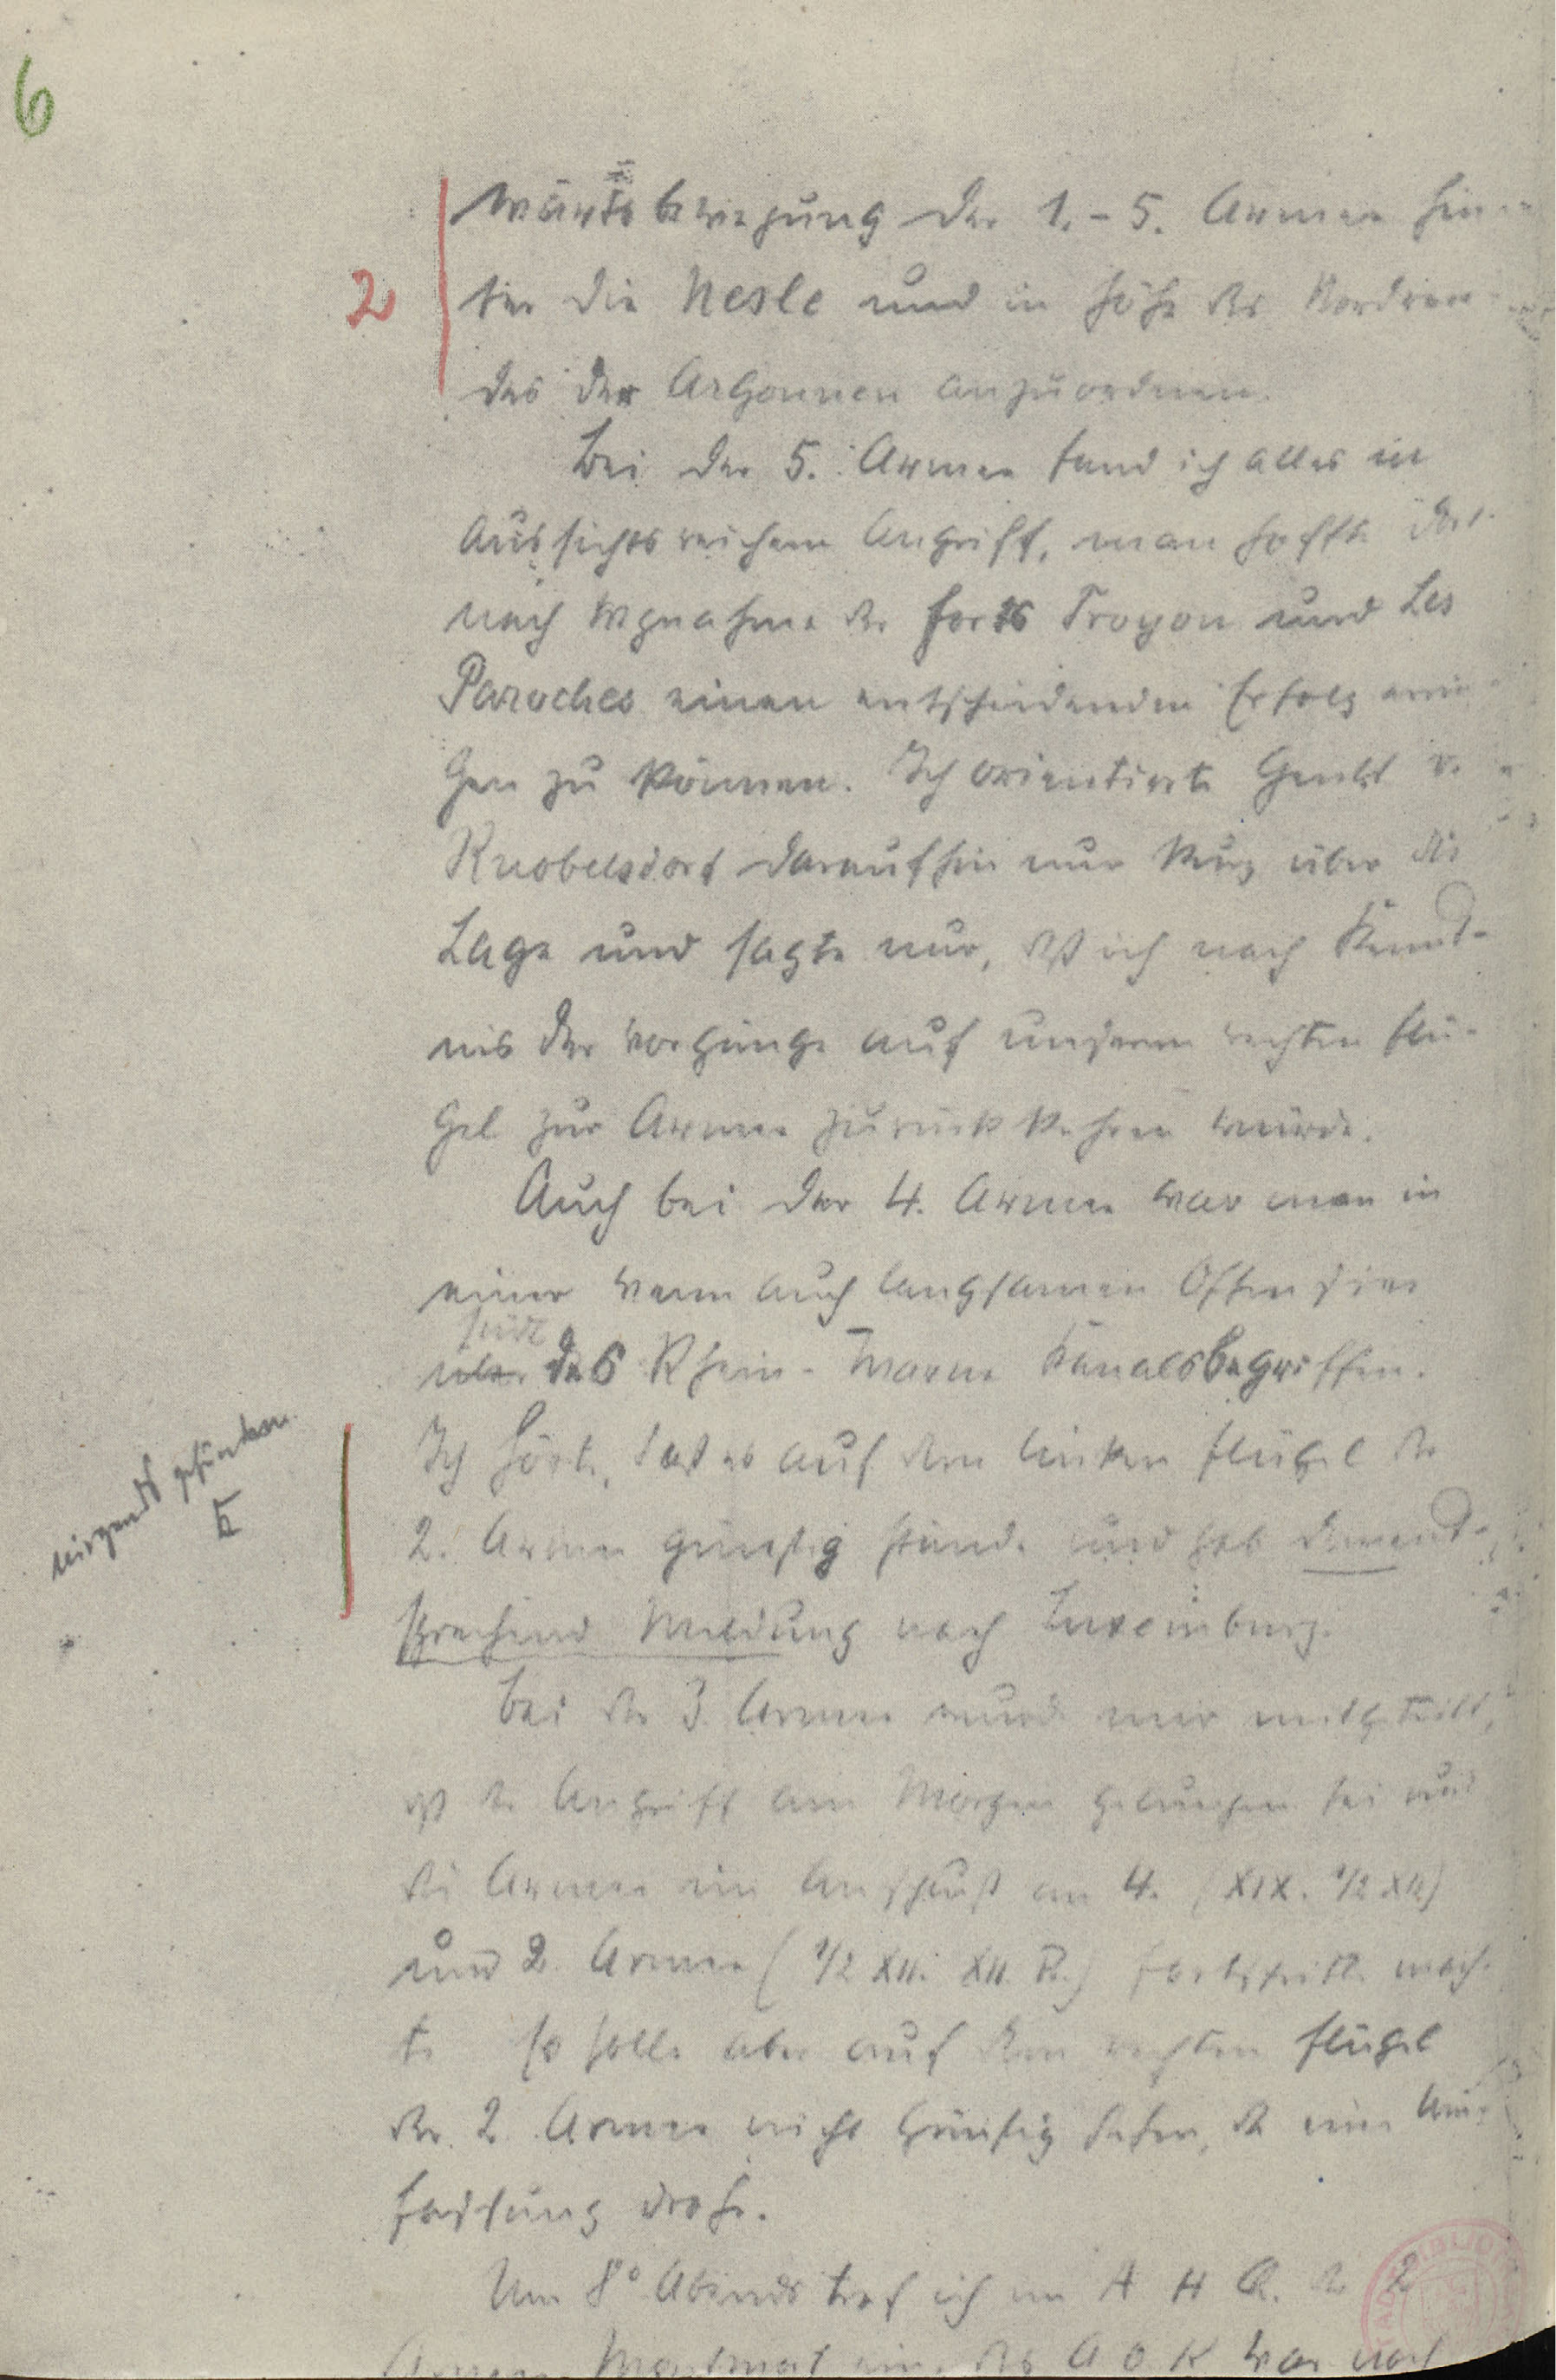 6
wärtsbewegung der 1.-5. Armee hin-
2
ter die Nesle und in Höhe des Nordran-
des der Argonnen anzuordnen.
Bei der 5. Armee fand ich alles in
aussichtsreichem Angriff, man hoffte dort
nach Wegnahme der Forts Troyon und Les
Paroches einen entscheidenden Erfolg errin-
gen zu können. Ich orientierte Genlt v.
Knobelsdorf daraufhin nur kurz über die
Lage und sagte nur, daß ich nach Kennt-
nis der Vorgänge auf unserem rechten Flü-
gel zur Armee zurückkehren würde.
Auch bei der 4. Armee war man in
einer wenn auch langsamen Offensive
süd
über des Rhein-Marne Kanals begriffen.
Ich hörte, daß es auf dem linken Flügel der
nirgends gefunden
2. Armee günstig stände und gab dement-
sprechend Meldung nach Luxemburg.
Bei der 3. Armee wurde mir mitgeteilt,
daß der Angriff am Morgen gelungen sei und
die Armee im Anschluß an 4. (XIX. 1/2 XII)
und 2. Armee (1/2 XII. XII. R.) Fortschritte mach-
te so solle aber auf dem rechten Flügel
der 2. Armee nicht günstig stehen, da eine Um-
fassung drohe.
Um 8° Abends traf ich im A H Q. der 2
Armee Montmort ein. Das A O K war noch